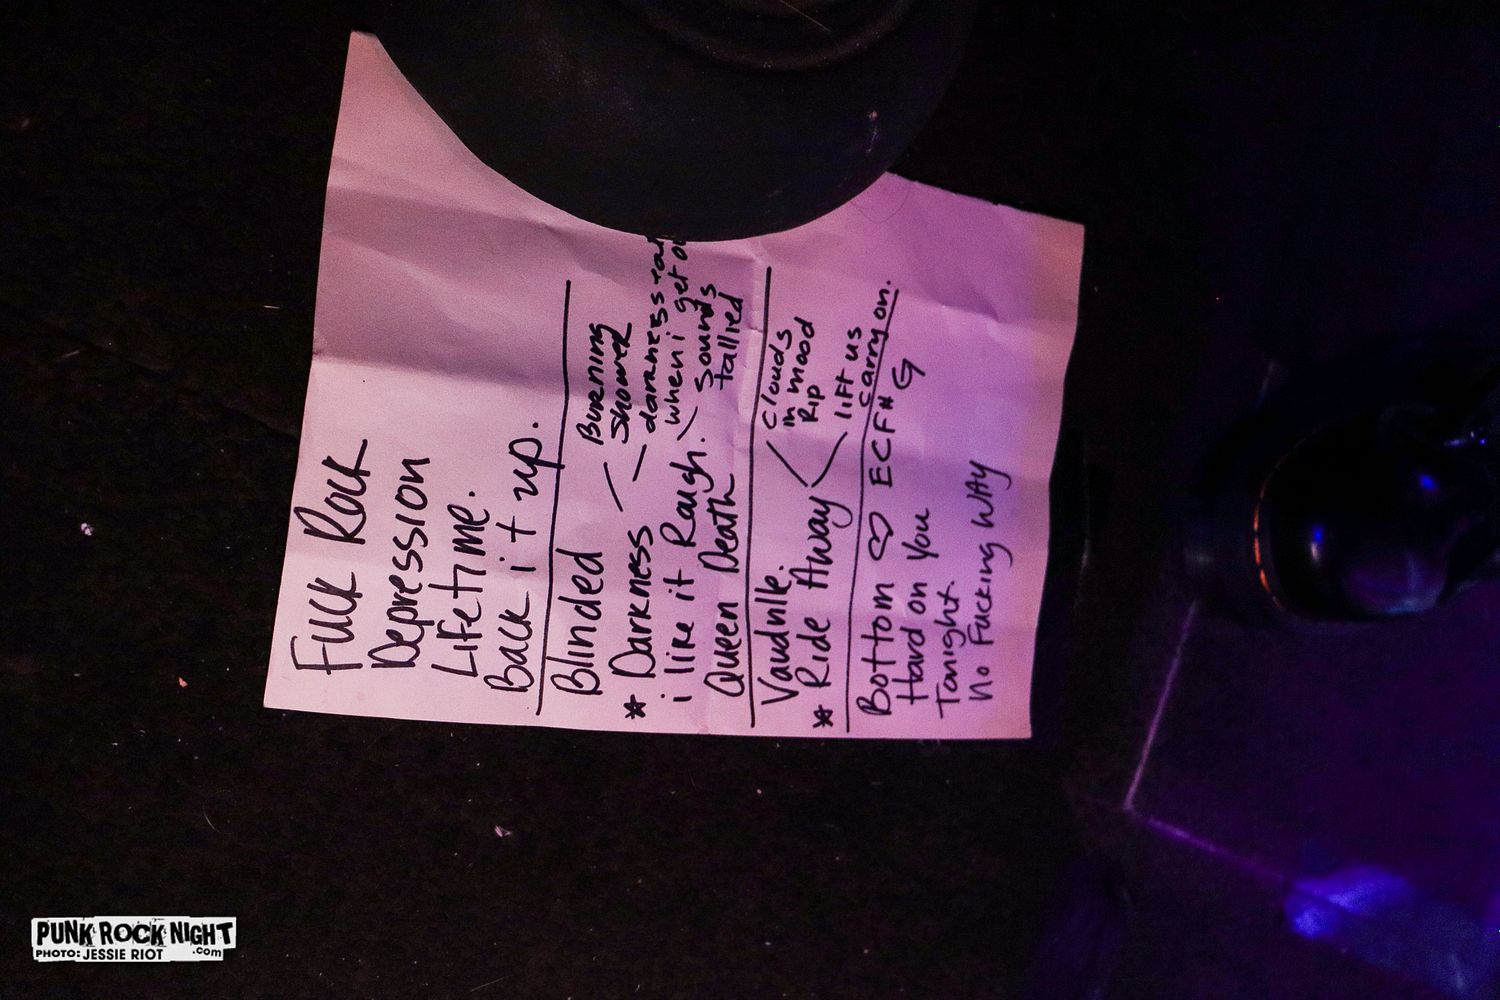 Fuck Rock
Depression
Lifetime.
Back it up.
Blinded
* Darkness
Burning
shower
darkness
i like it Rough.
when i get
sounds
tallied
Queen Death
* Ride Away
clouds
in mood
Rip
lift us
carry on.
Bottom ♡ ECF# G
Hard on You
Tonight.
No Fucking WAY
PUNK ROCK NIGHT
.com
PHOTO: JESSIE RIOT